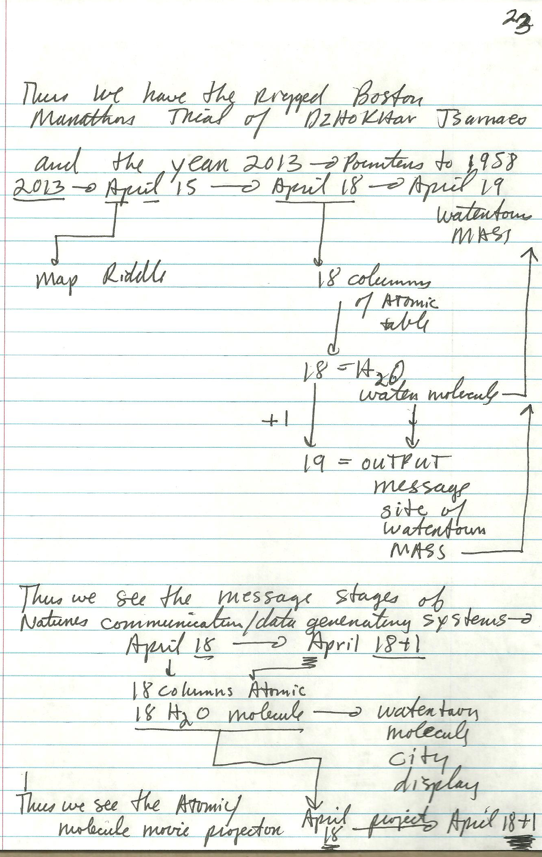 23
Thus we have the rigged Boston
Marathons Trial of DZHOKHAR Tsarnaeo
and the year 2013 → Pointers to 1958
2013 → April 15 → April 18 → April 19
Watertown
MASS
Map Riddle
18 columns
of Atomic
table
18 = H2O
water molecule
+1
19 = OUTPUT
message
site of
watertown
MASS
Thus we see the message stages of
Natures communication/data generating systems →
April 18 → April 18+1
18 columns Atomic
18 H2O molecule → watertown
molecule
city
display
Thus we see the Atomic/
molecule movie projector April project April 18+1
18